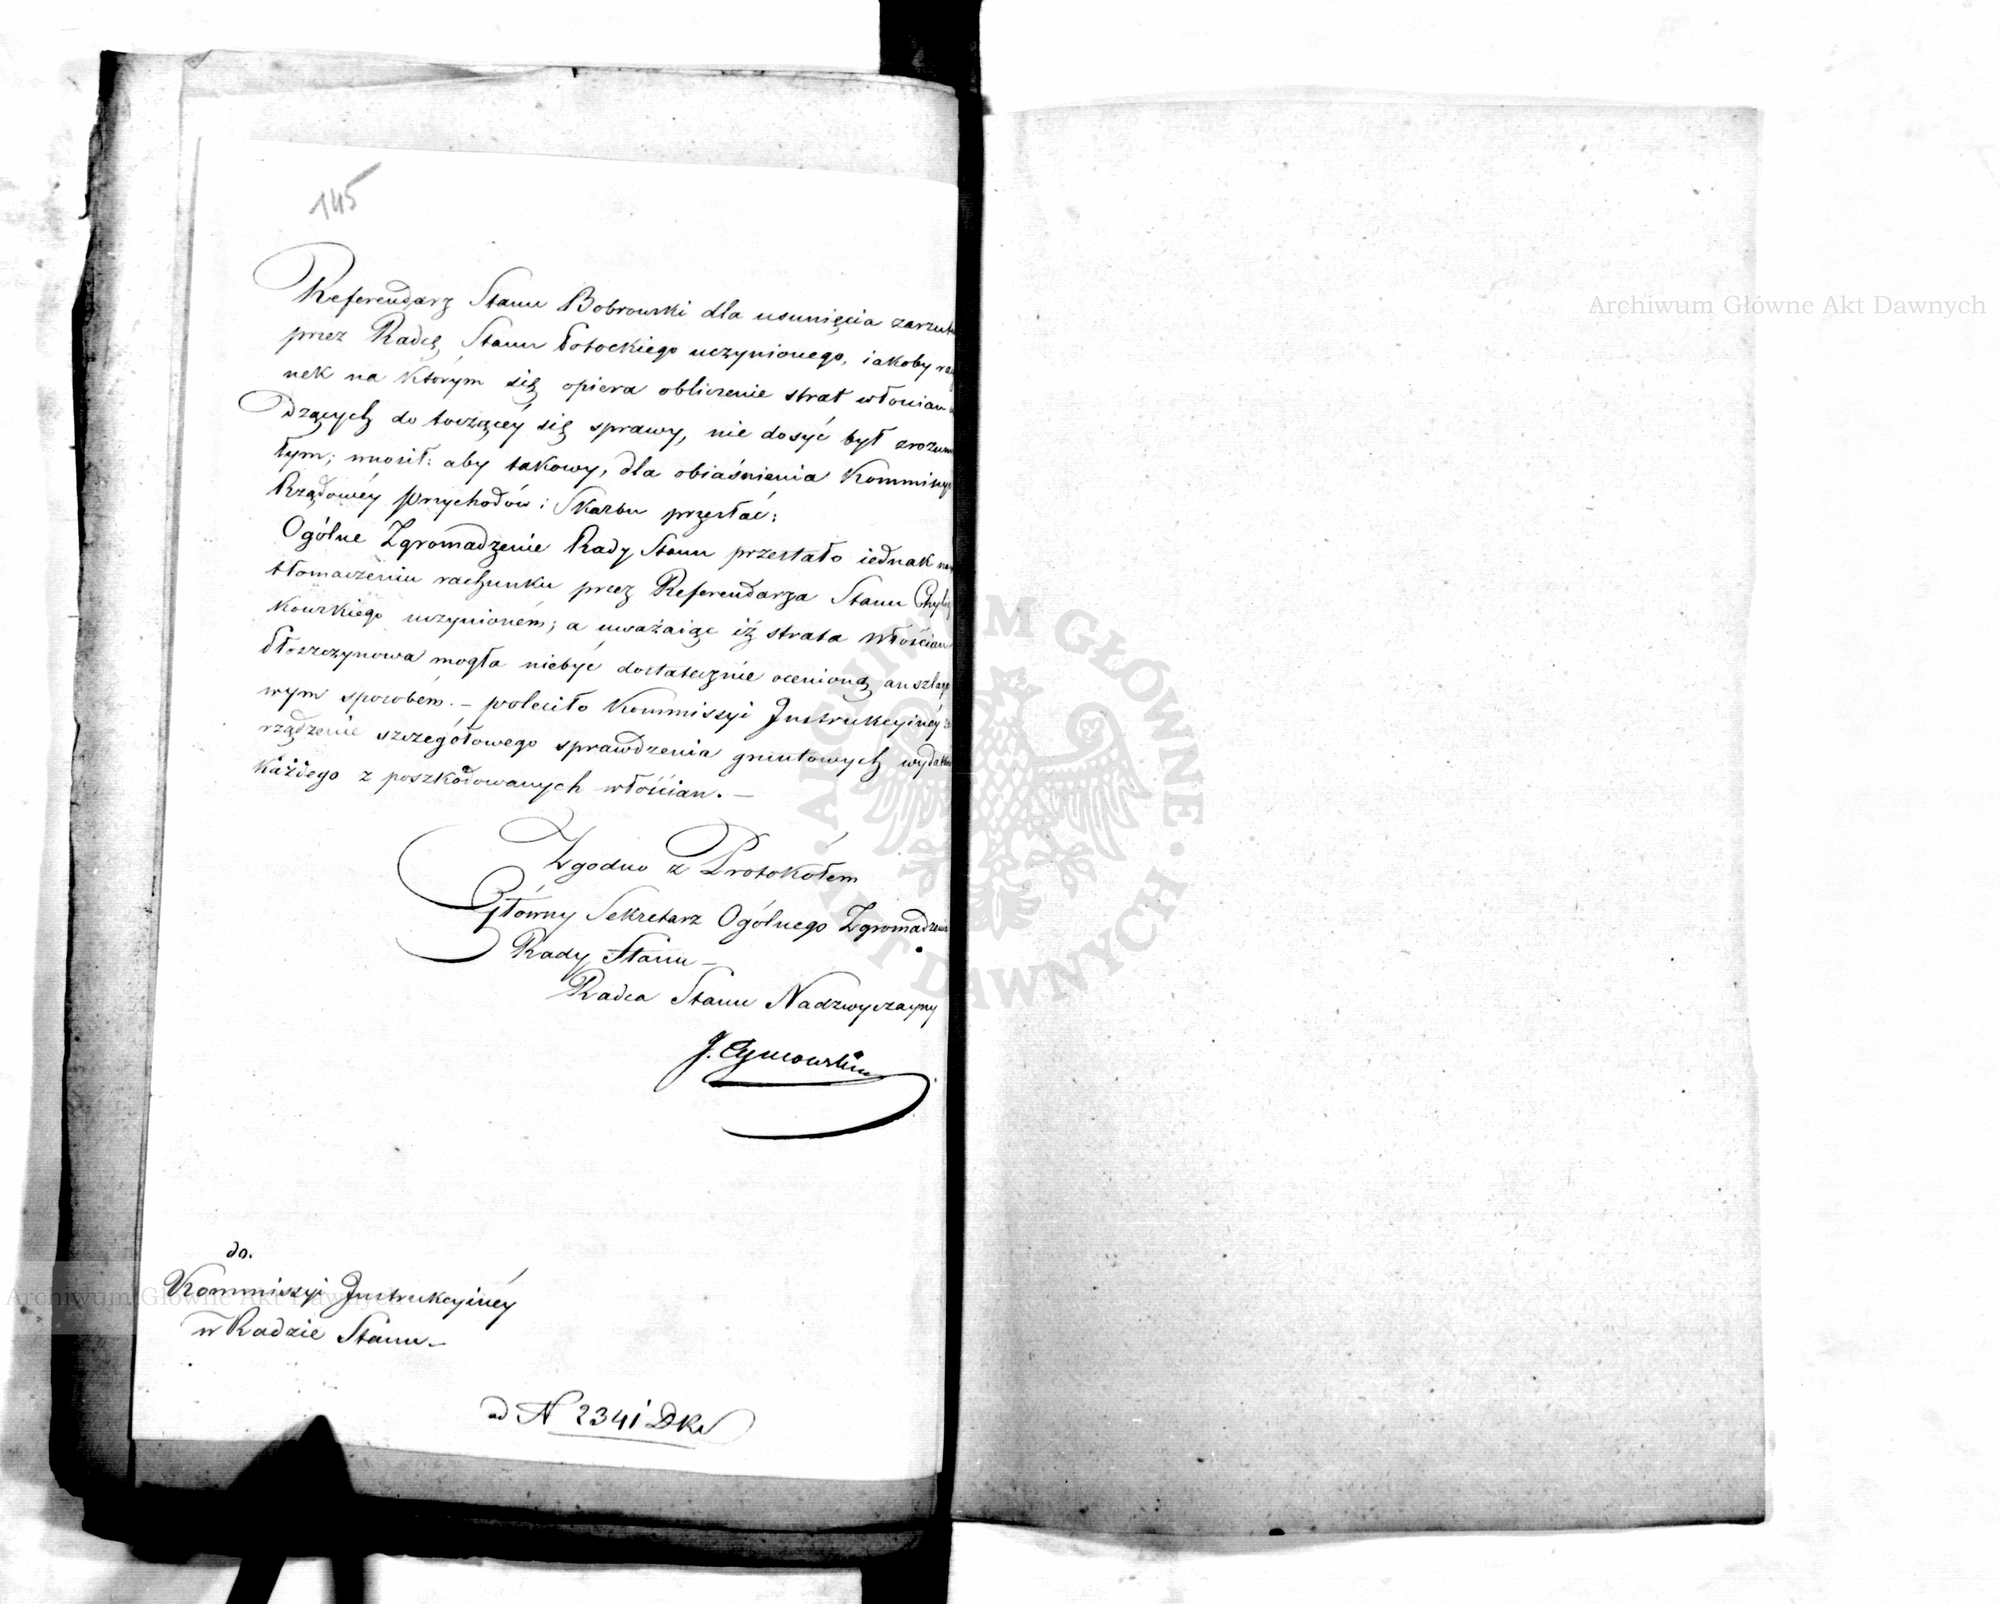 145
Referendarz Stanu Bobrowski dla usunięcia zarzutu
przez Radcę Stanu Potockiego uczynionego, iakoby
nek na którym się opiera obliczenie strat włościan
dzących do toczącéy się sprawy, nie dosyć był zrozum
łym; wnosił: aby takowy, dla obiaśnienia Kommissyi
Rządowéy Przychodów i Skarbu przesłać;
Ogólne Zgromadzenie Rady Stanu przestało iednak na
tłomaczeniu rachunku przez Referendarza Stanu
kowskiego uczynioném; a uważaiąc iż strata Włościan
Płoszczynowa mogła niebyć dostatecznie ocenioną anszlago
wym sposobém. – poleciło Kommissyi Instrukcyinéy
rządzenie szczegółowego sprawdzenia gruntowych wydatków
każdego z poszkodowanych włościan. –
Zgodno z Protokołem
Główny Sekretarz Ogólnego Zgromadzenia
Rady Stanu –
Radca Stanu Nadzwyczayny
J.
do.
Kommissyi Instrukcyinéy
w Radzie Stanu –
ad N 2341
Archiwum Główne Akt Dawnych
Archiwum Główne Akt Dawnych
ARCHIWUM GŁÓWNE · AKT DAWNYCH ·